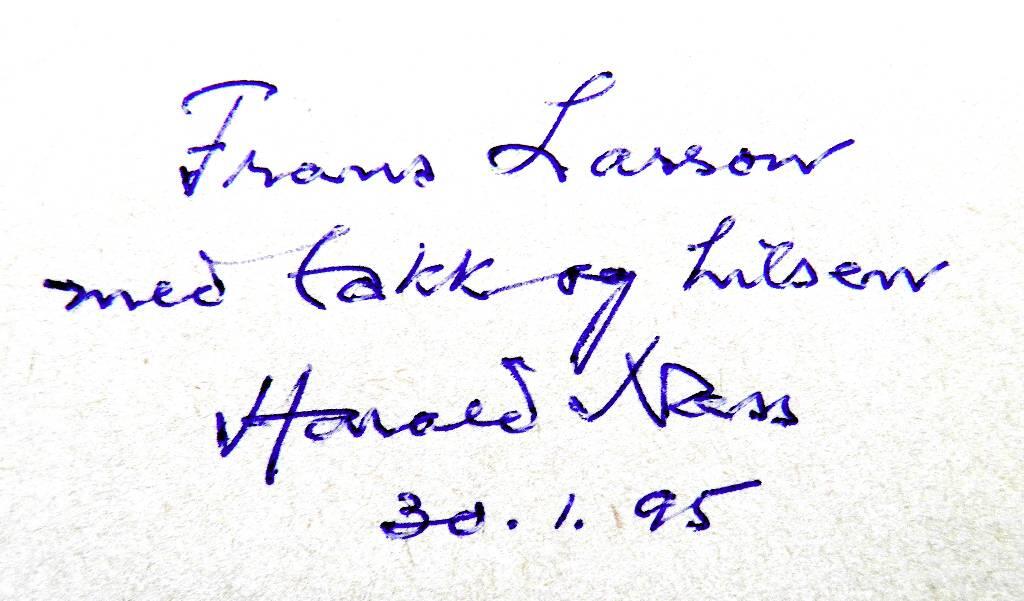 Frans Larson
med takk og hilsen
Harald Næss
30.1.95